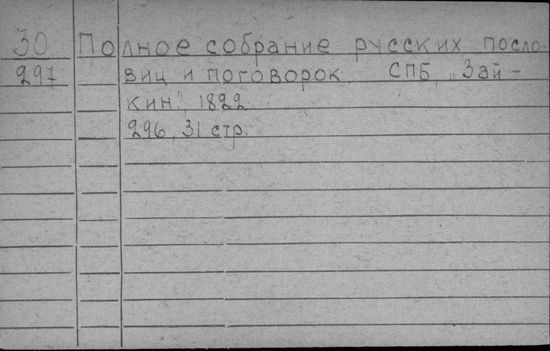 30 Полное собрание русских посло-
297 виц и поговорок. СПБ, „Зай-
кин", 1822
296, 31 стр.